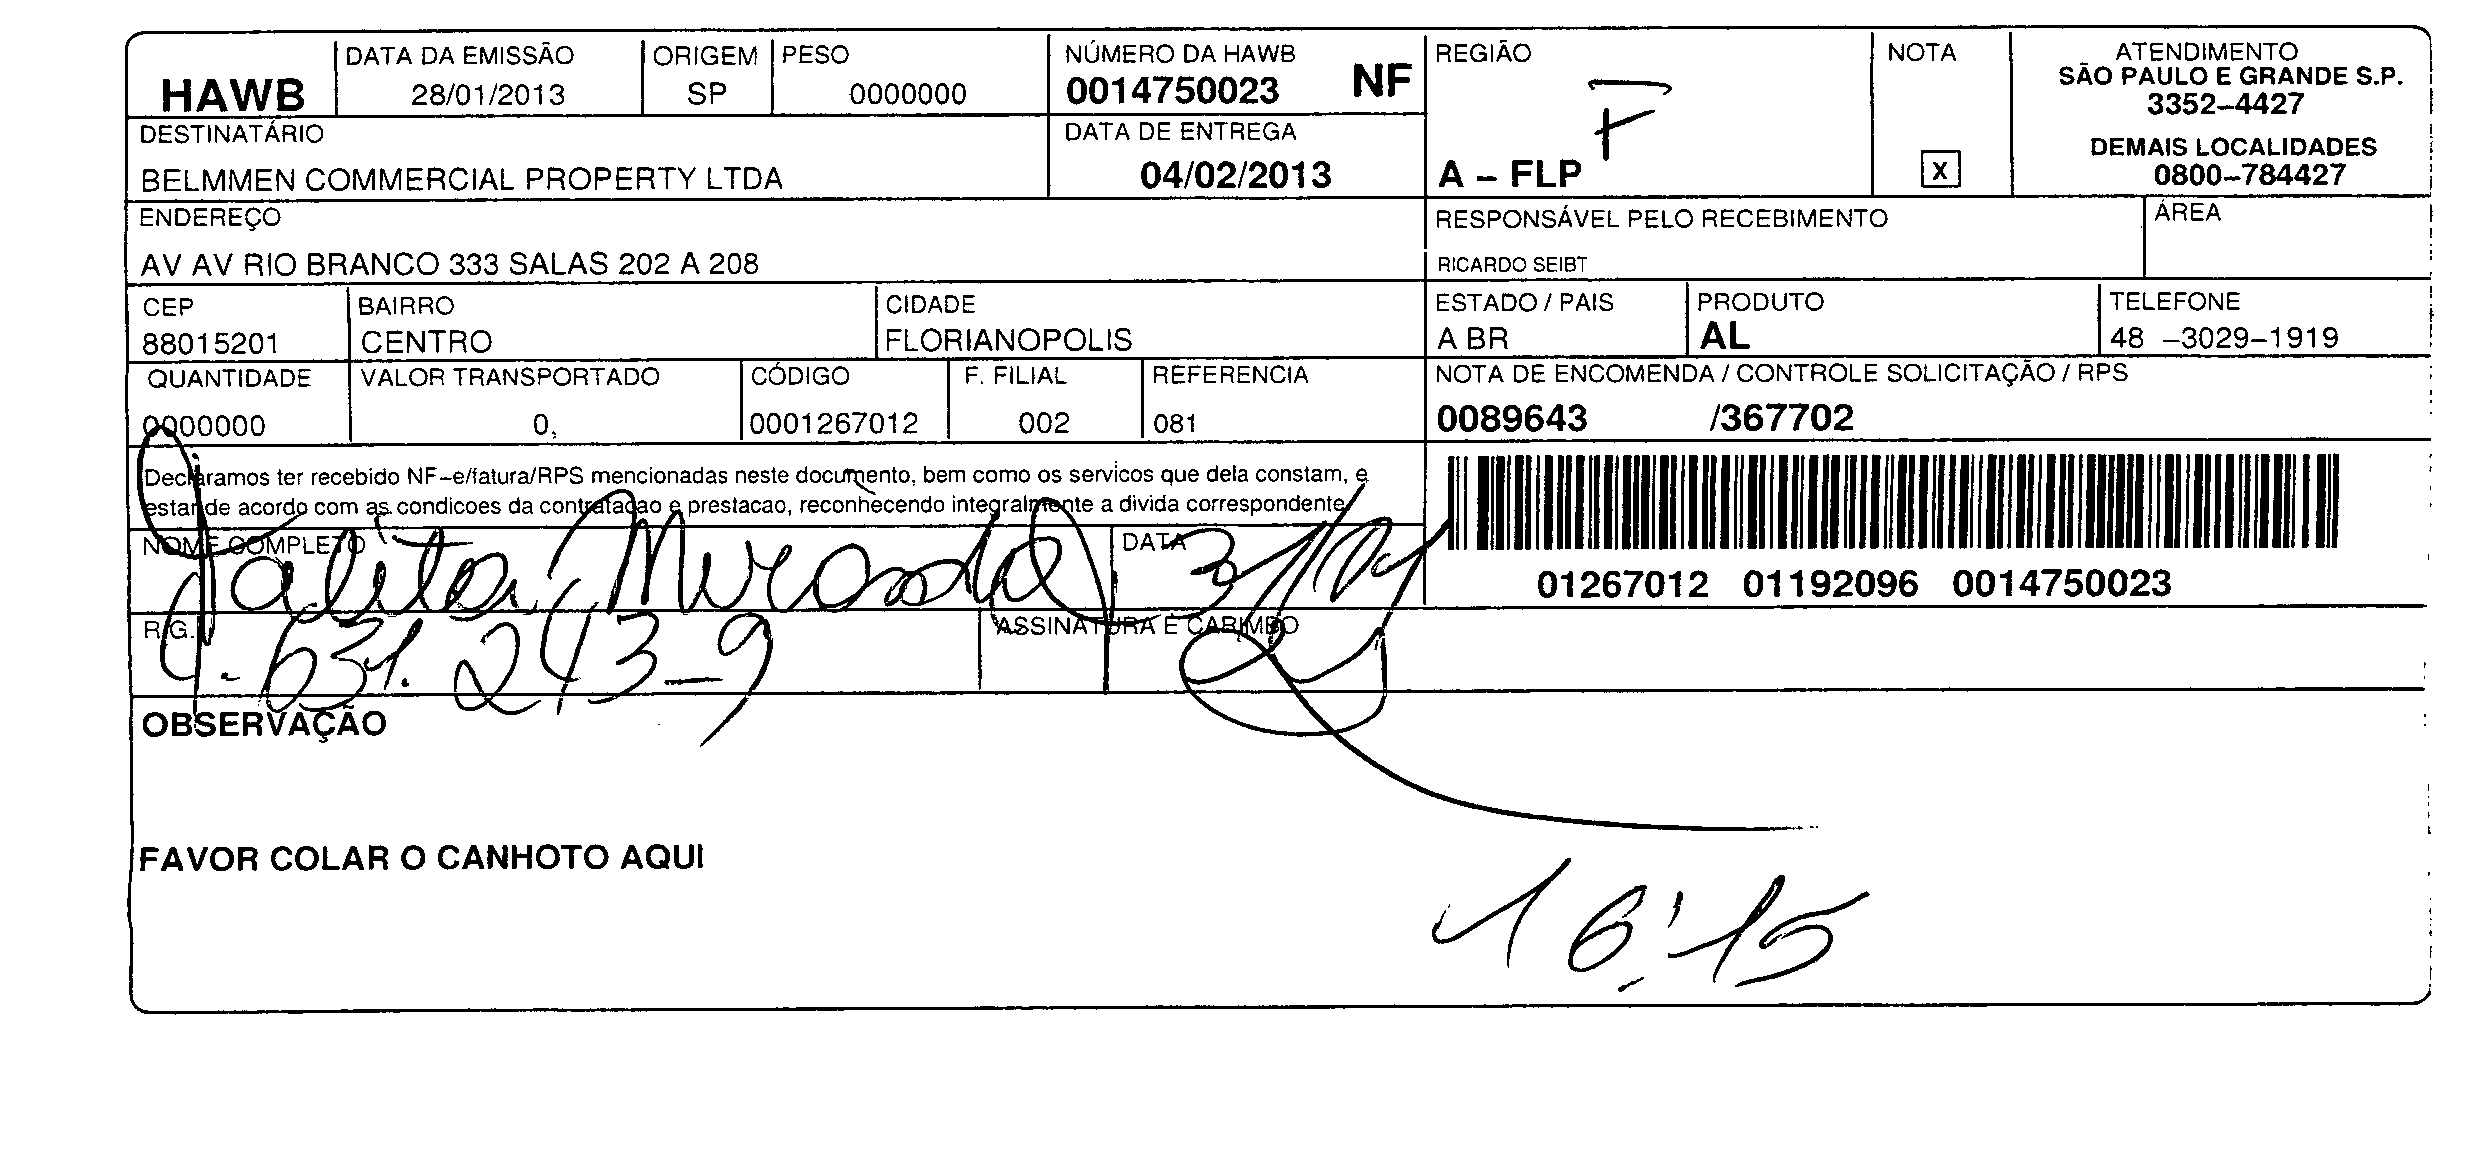 HAWB
DATA DA EMISSÃO
28/01/2013
ORIGEM
SP
PESO
0000000
NÚMERO DA HAWB
0014750023 NF
REGIÃO
F
A – FLP
NOTA
X
ATENDIMENTO
SÃO PAULO E GRANDE S.P.
3352–4427
DEMAIS LOCALIDADES
0800–784427
DESTINATÁRIO
BELMMEN COMMERCIAL PROPERTY LTDA
DATA DE ENTREGA
04/02/2013
ENDEREÇO
AV AV RIO BRANCO 333 SALAS 202 A 208
RESPONSÁVEL PELO RECEBIMENTO
RICARDO SEIBT
ÁREA
CEP
88015201
BAIRRO
CENTRO
CIDADE
FLORIANOPOLIS
ESTADO / PAIS
A BR
PRODUTO
AL
TELEFONE
48 –3029–1919
QUANTIDADE
0000000
VALOR TRANSPORTADO
0,
CÓDIGO
0001267012
F. FILIAL
002
REFERENCIA
081
NOTA DE ENCOMENDA / CONTROLE SOLICITAÇÃO / RPS
0089643 /367702
Declaramos ter recebido NF–e/fatura/RPS mencionadas neste documento, bem como os servicos que dela constam, e
estar de acordo com as condicoes da contratacao e prestacao, reconhecendo integralmente a divida correspondente
01267012 01192096 0014750023
NOME COMPLETO
Talita Miranda
DATA
R.G.
4.631.243-9
ASSINATURA E CARIMBO
OBSERVAÇÃO
FAVOR COLAR O CANHOTO AQUI
16:15